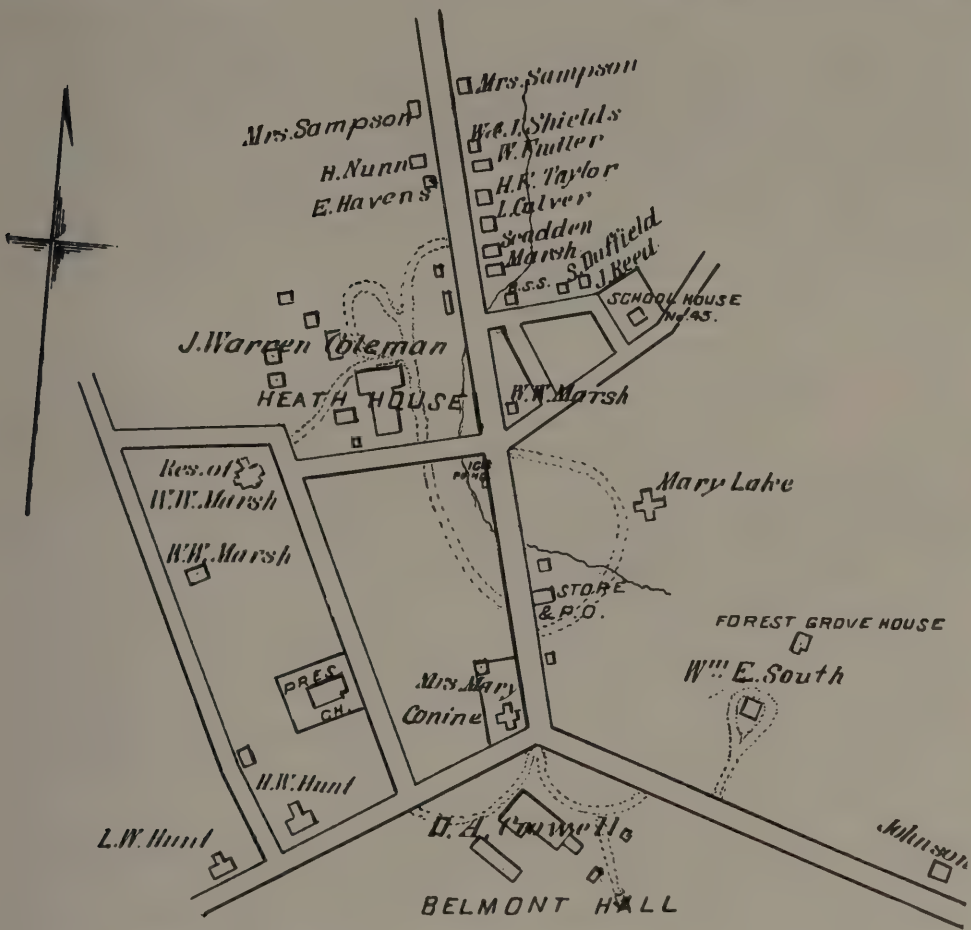 Mrs. Sampson
Mrs. Sampson
W. & I. Shields
W. Fuller
H. Nunn
H. F. Taylor
E. Havens
L. Calver
Scadden
Marsh
B.S.S.
S. Duffield
J. Reed
SCHOOL HOUSE
No. 45.
J. Warren Coleman
HEATH HOUSE
W. W. Marsh
ICE
POND
Res. of
W. W. Marsh
Mary Lake
W. W. Marsh
STORE
& P.O.
FOREST GROVE HOUSE
Wm E. South
PRES.
CH.
Mrs. Mary
Conine
H. W. Hunt
L. W. Hunt
D. A. Crowell
Johnson
BELMONT HALL